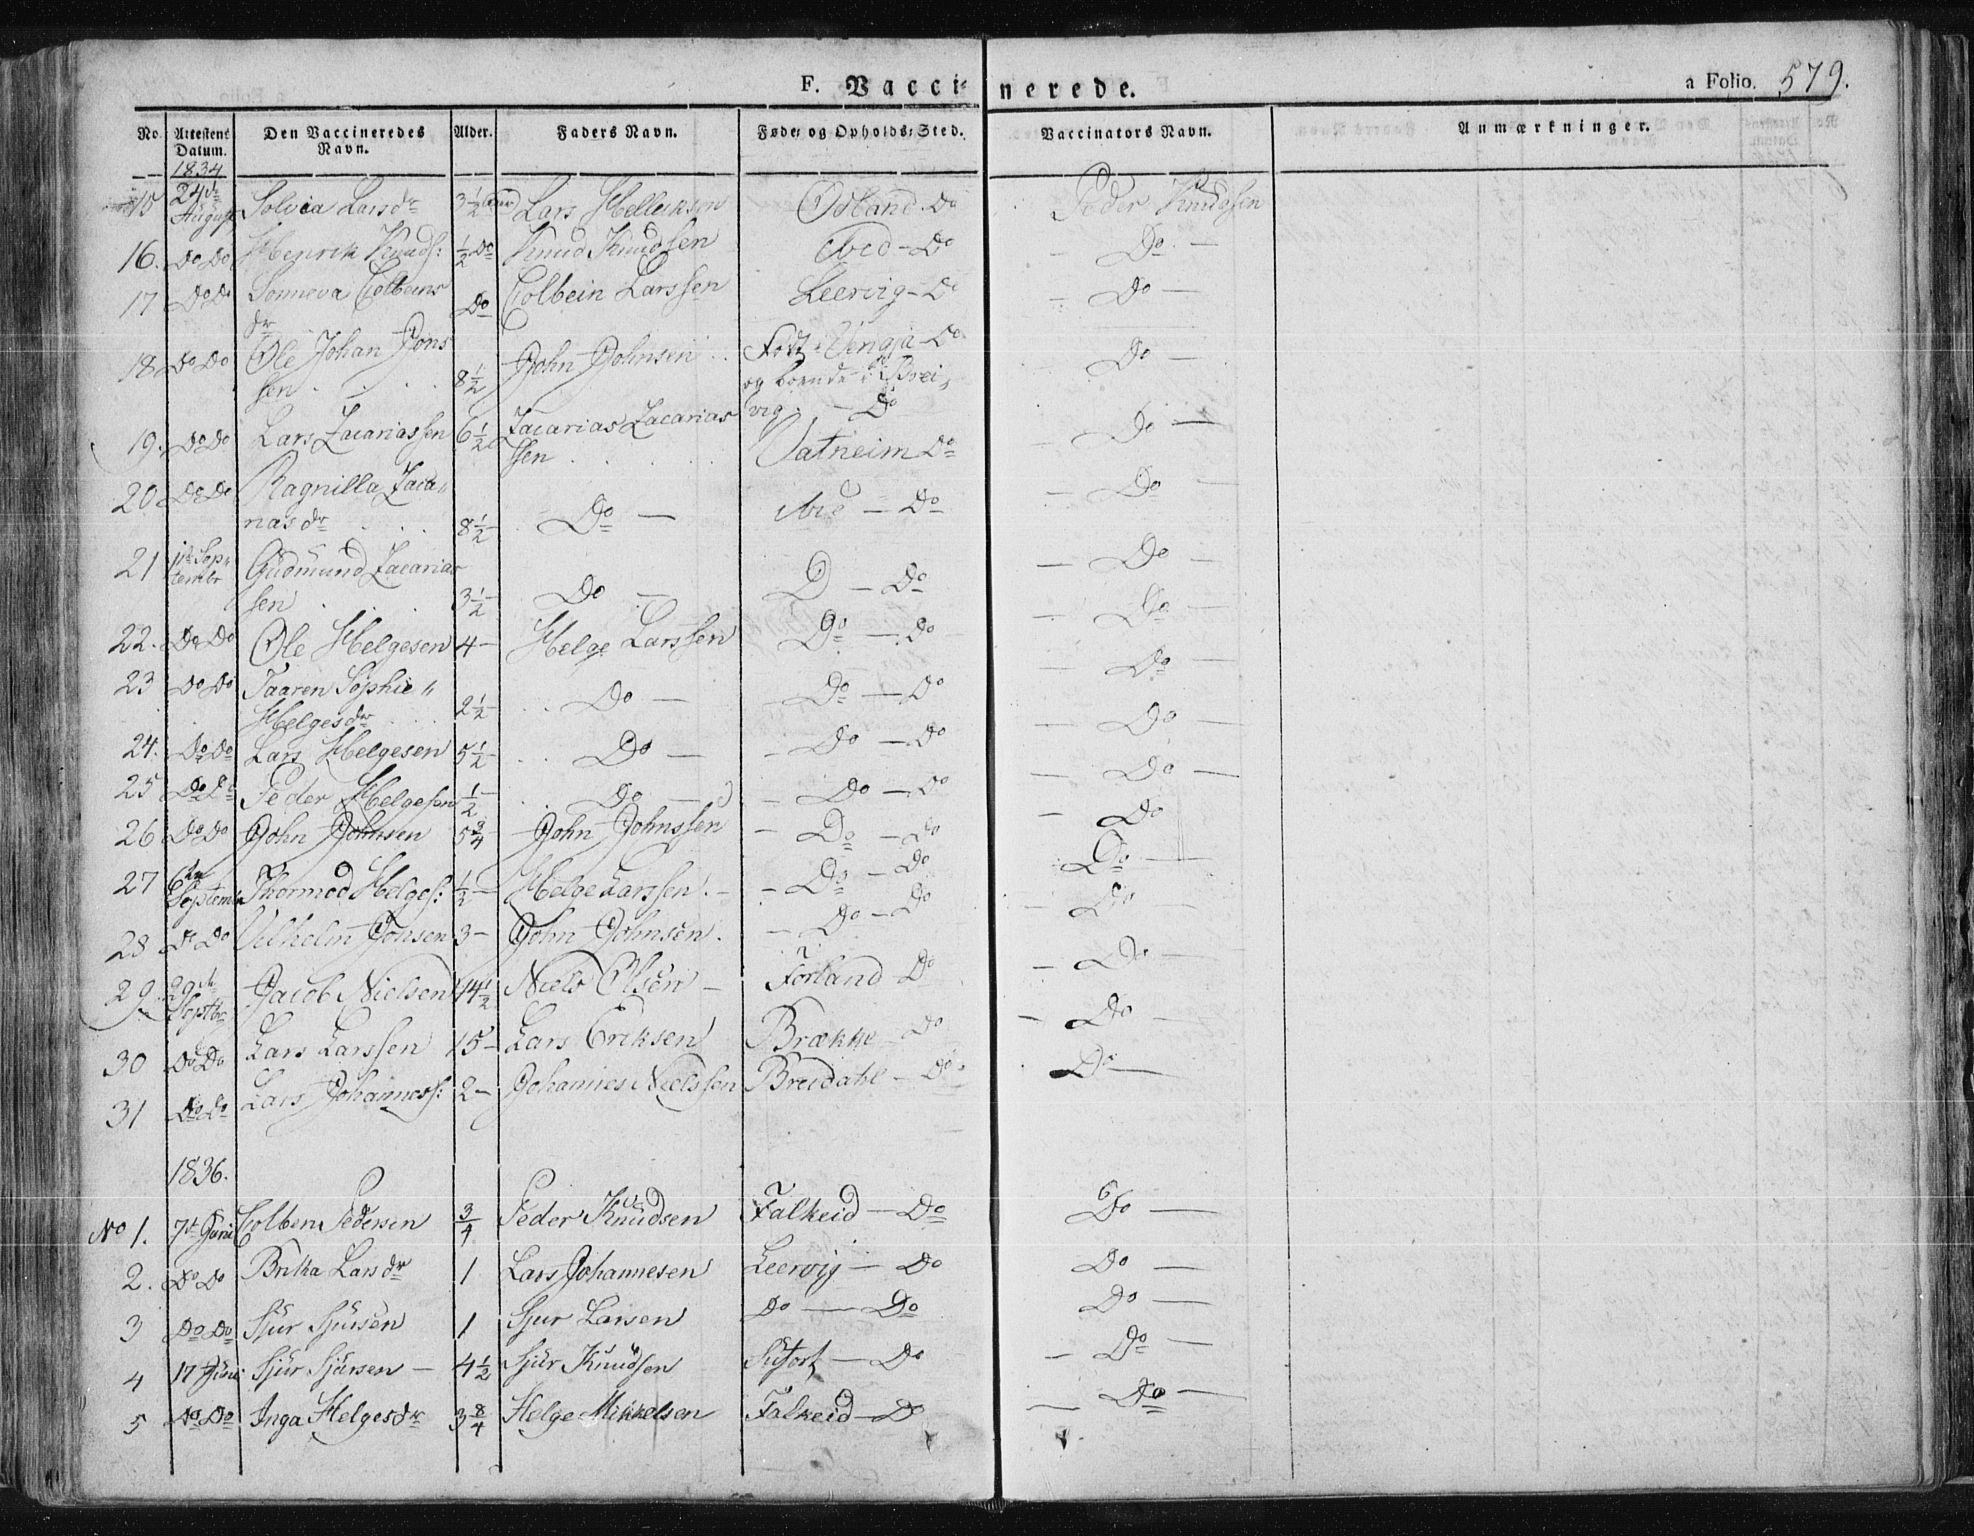 F. Vaccinerede.
a Folio. 579.
No. Attestens Datum. Den Vaccineredes Navn. Alder. Faders Navn. Føde- og Opholds-Sted. Vaccinators Navn. Anmærkninger.
1834
15 24de August Solvia Larsdr 3 1/2 Lars Helleriksen Do Peder Knudssen
16. Do Do Henrik Knuds: 1/2 Do Knud Knudssen ibid - Do Do -
17 Do Do Sonneva Colbeins
dr Do Colbein Larssen Leervig - Do - Do -
18 Do Do Ole Johan Jons
sen 8 1/2 John Johnsen Født i Vengja - Do Do -
og boende i Brei-
vig. - Do
19. Do Do Lars Zacariassen 6 1/2 Zacarias Zacarias
sen Vatneim Do - Do -
20 Do Do Ragnilla Zaca-
riasdr 8 1/2 Do - ibid - Do - Do -
21 11te Sep-
tembr Gudmund Zacarias
sen 3 1/2 Do - D - Do - Do -
22. Do Do Ole Helgesen 4 - Helge Larssen Do - Do - Do -
23 Do Do Taaren Sophie
Helgesdr 2 1/2 Do - Do - Do - Do -
24. Do Do Lars Helgesen 5 1/2 Do - - Do - Do - Do -
25 Do Do Peder Helgesen 1/2 Do - - Do - Do - Do -
26 Do Do John Johnsen 5 3/4 John Johnssen - Do - Do - Do
27 Septembr Thormod Helges: 1/2 - Helge Larssen. - - Do - Do Do -
28 Do Do Vilhelm Jonsen 3 - John Johnsen. - Do - Do - Do -
29. 29de Septbr Jacob Nielsen 14 1/2 Niels Olsen - Forland - Do - Do -
30 Do Do Lars Larssen 15 - Lars Eriksen Brække - Do - Do -
31 Do Do Lars Johanness: 2 - Johannes Nielssen Breidahl - Do Do -
1836.
No 1. 7de Juni Colben Pedersen 3/4 Peder Knudsen Falkeid - Do Do -
2. Do Do Britha Larsdr 1 Lars Johannesen Leervig - Do Do -
3 Do Do Sjur Sjursen 1 Sjur Larsen Do - Do Do -
4 17 Juni Sjur Sjursen - 4 1/2 Sjur Knudsen - Do - Do -
5 Do Do Inga Helgesdr 3 8/4 Helge Mikkelsen Falkeid - Do - Do -